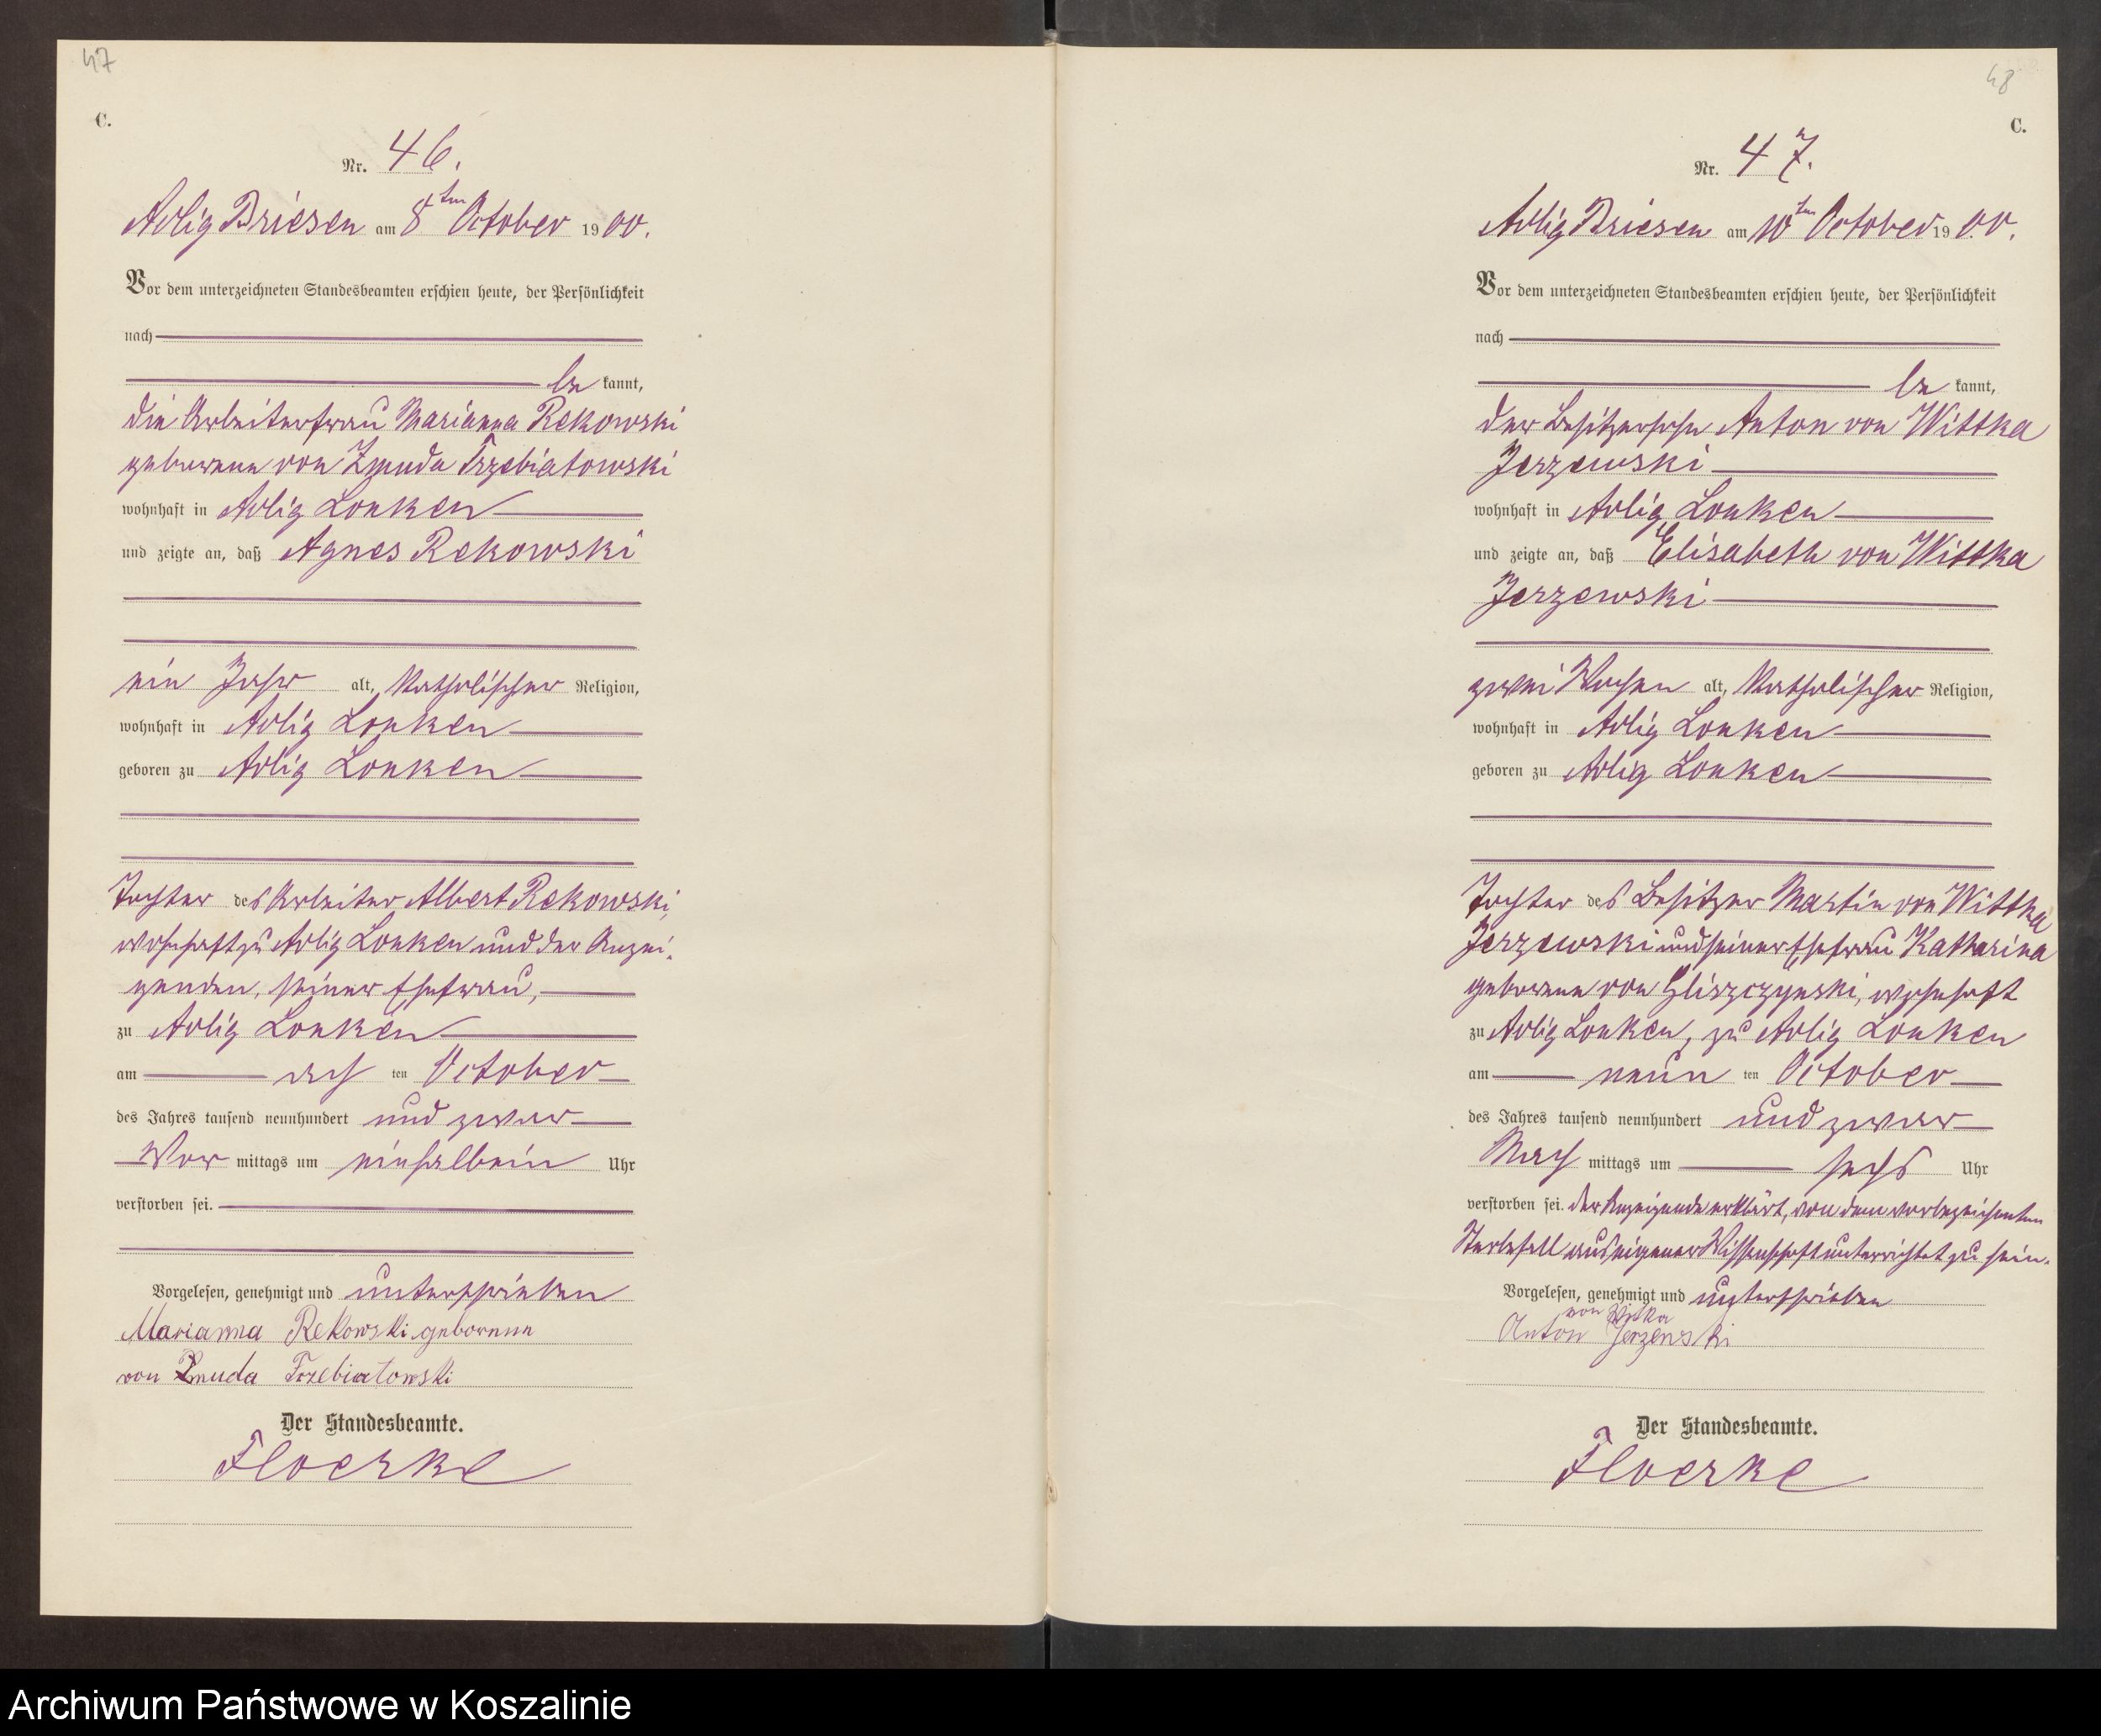 47
C.
Nr. 46.
Adlig Briesen am 8ten October 1900.
Vor dem unterzeichneten Standesbeamten erschien heute, der Persönlichkeit
nach
be kannt,
die Arbeiterfrau Marianna Rekowski
geborene von Zmuda Trzebiatowski
wohnhaft in Adlig Lonken
und zeigte an, daß Agnes Rekowski
ein Jahr alt, katholischer Religion,
wohnhaft in Adlig Lonken
geboren zu Adlig Lonken
Tochter des Arbeiter Albert Rekowski,
wohnhaft zu Adlig Lonken und der Anzei-
genden, seiner Ehefrau,
zu Adlig Lonken
am ach ten October
des Jahres tausend neunhundert und zwar
Vor mittags um einhalbein Uhr
verstorben sei.
Vorgelesen, genehmigt und unterschrieben
Marianna Rekowski geborene
von Zmuda Trzebiatowski
Der Standesbeamte.
Floerke
48
C.
Nr. 47.
Adlig Briesen am 10ten October 1900.
Vor dem unterzeichneten Standesbeamten erschien heute, der Persönlichkeit
nach
be kannt,
der Besitzersohn Anton von Wittka
Jerzewski
wohnhaft in Adlig Lonken
und zeigte an, daß Elisabeth von Wittka
Jerzewski
zwei Wochen alt, katholischer Religion,
wohnhaft in Adlig Lonken
geboren zu Adlig Lonken
Tochter des Besitzer Martin von Wittka
Jerzewski und seiner Ehefrau Katharina
geborene von Gliszczynski, wohnhaft
zu Adlig Lonken, zu Adlig Lonken
am neun ten October
des Jahres tausend neunhundert und zwar
Nach mittags um sechs Uhr
verstorben sei. Der Anzeigende erklärt, von dem vorbezeichneten
Sterbefall aus eigener Wissenschaft unterrichtet zu sein.
Vorgelesen, genehmigt und unterschrieben
von Witka
Anton Jerzewski
Der Standesbeamte.
Floerke
Archiwum Państwowe w Koszalinie